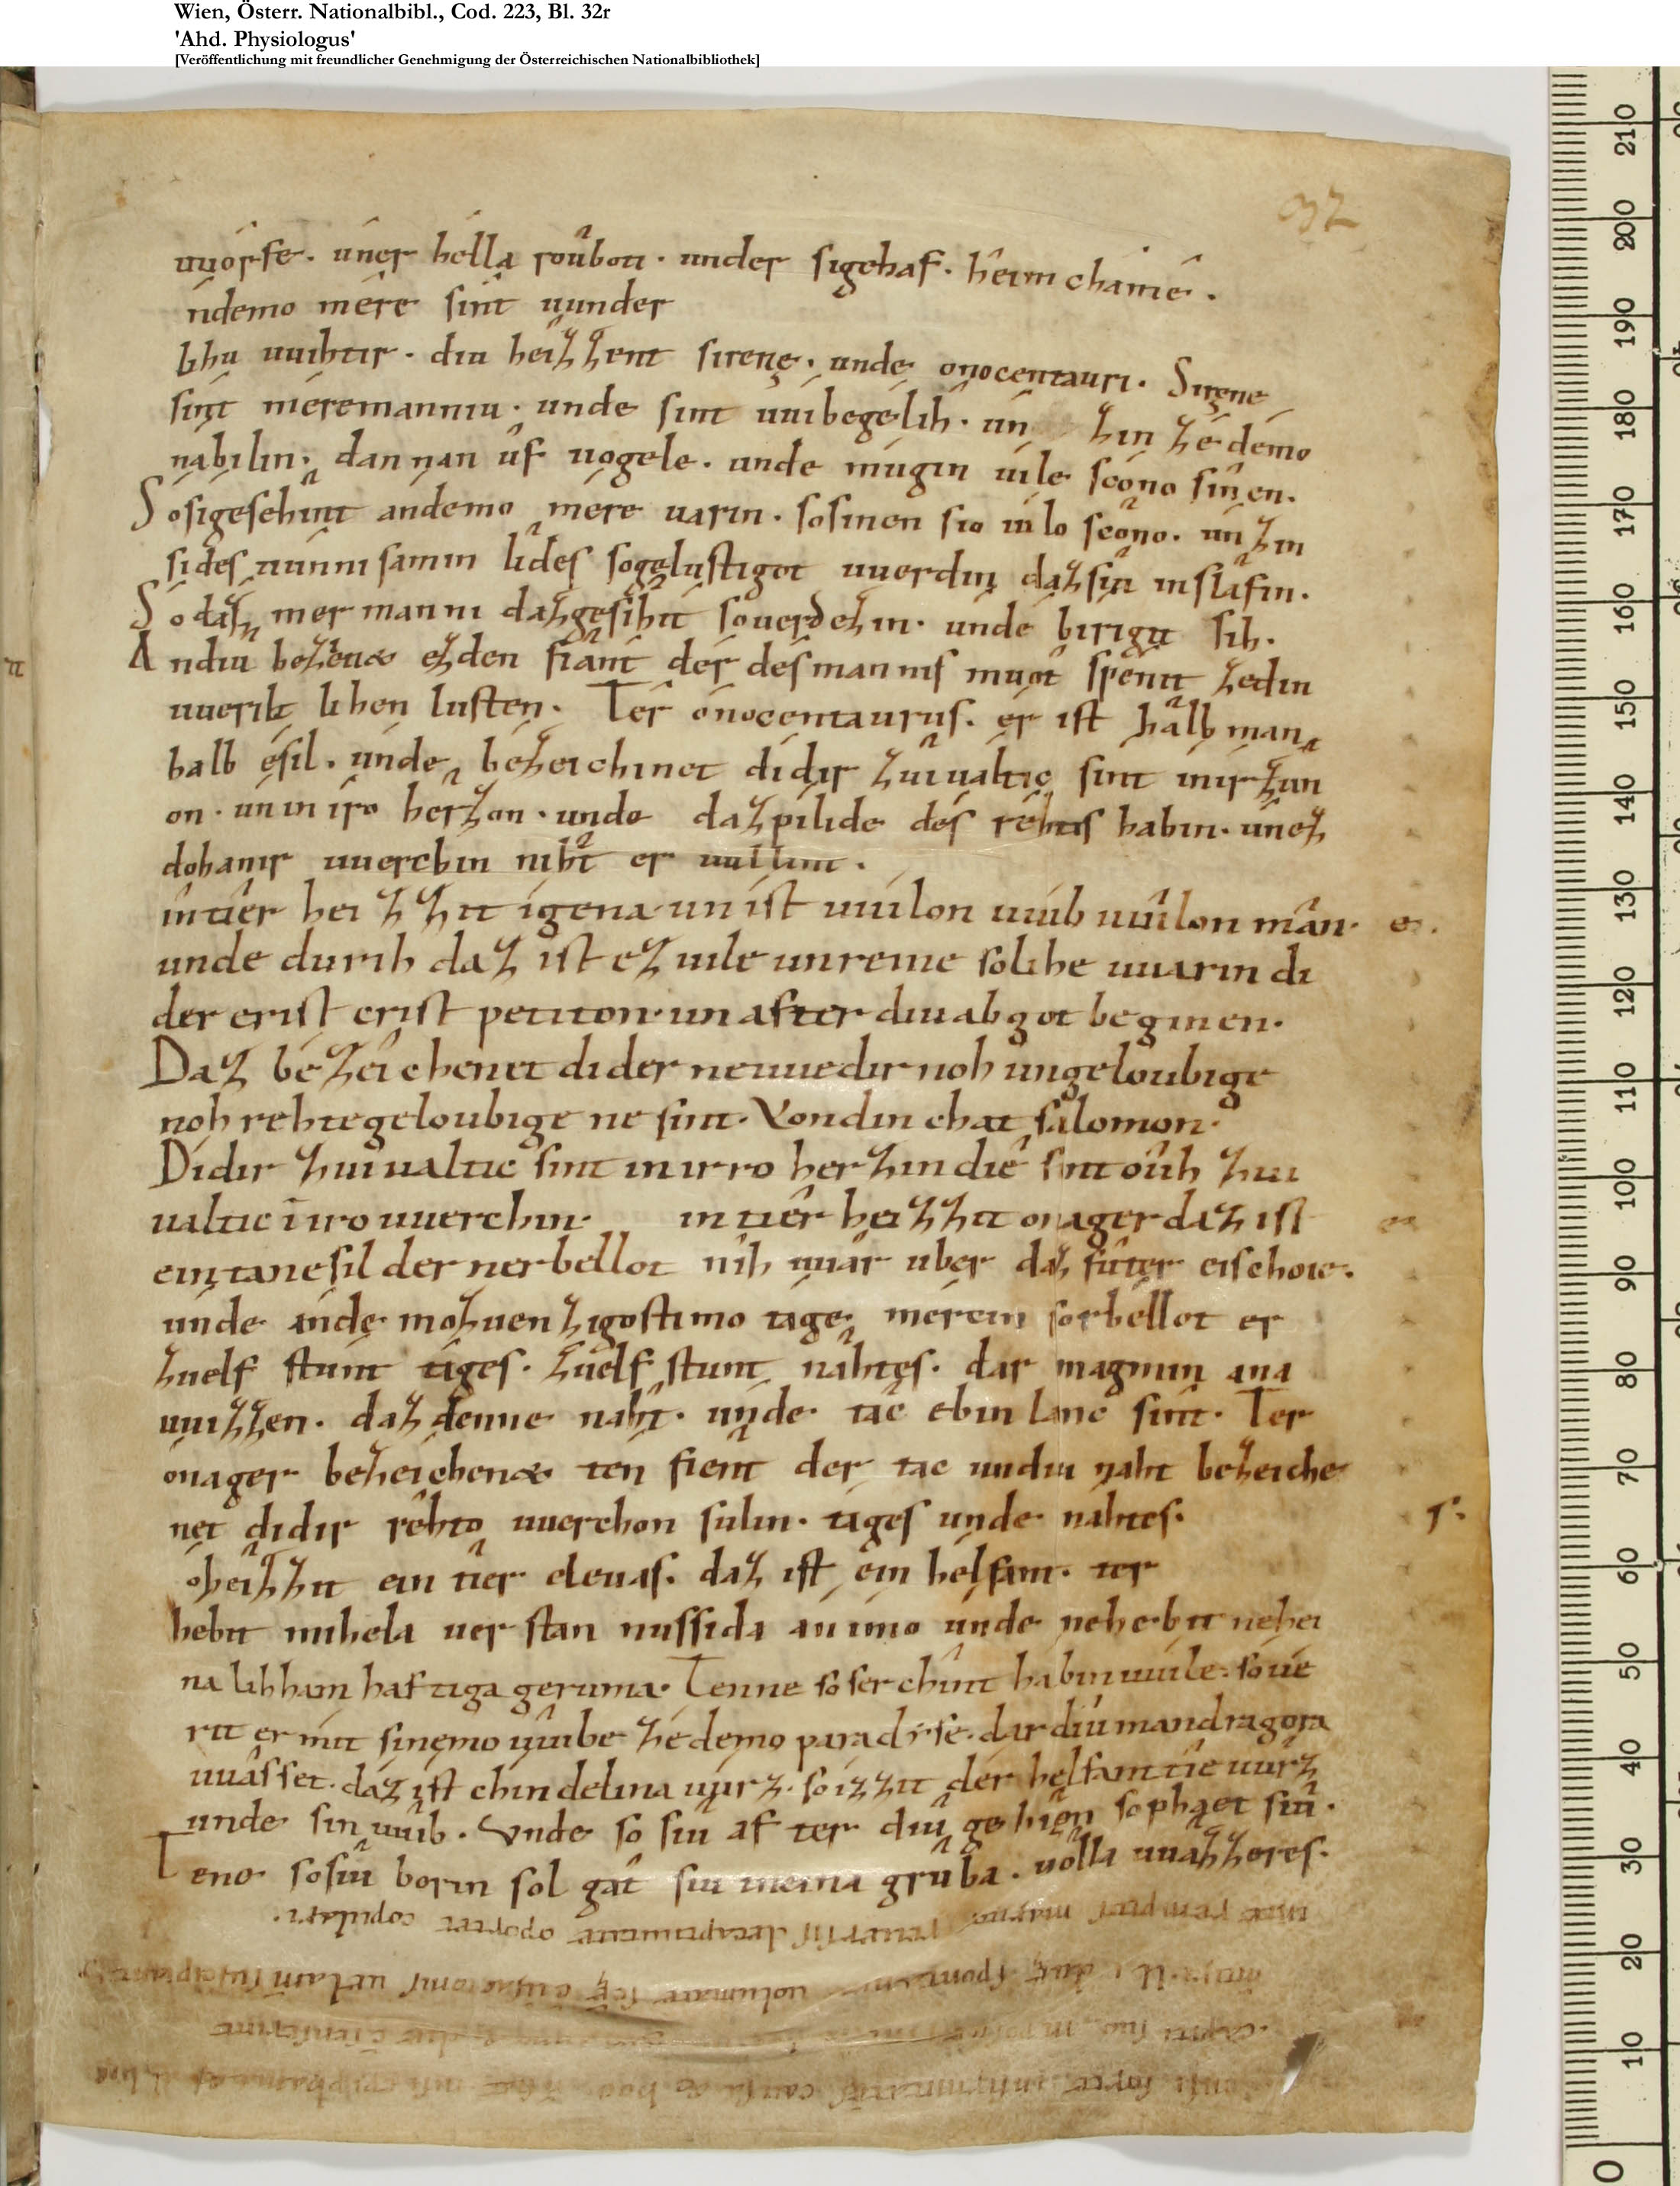 Wien, Österr. Nationalbibl., Cod. 223, Bl. 32r
'Ahd. Physiologus'
[Veröffentlichung mit freundlicher Genehmigung der Österreichischen Nationalbibliothek]
32
uuórfe. úner hella roûboti. under sigehaf. heim chamē.
ndemo mére sint uunder
lihu uuihtir. diu heizzent sirenę. unde onocentauri. Sirene
sint méremanniu. unde sint uuibegelih. un zin zé demo
nabilin. dannan ûf uogele. unde mugin uile scôno sinen.
Sosigesehint andemo mere uarin. sosinen sio uilo scôno. unzin
sides uunnisamin lides sogelustigot uuerdin dazsiu inslafin.
Só daz mermanni dazgesihit souerdezin. unde birigit sih.
Andiu bezêne& ezden fiánt der des mannis muôt spenit zedin
uueriltlihen lusten. Ter ónocentaurus. er ist halb man
halb ésil. unde bezeichinet didir zuiualtic sint inirzun
on. un in iro herzon. unde daz pilide des rehtis habin. unez
dohanir uuerchin niht er uullint.
in tîer heizzit igena un ist uuilon uuib uuîlon mân.
unde durih daz ist ez uile unreine solihe uuarin di
der erist crist petiton. un after diu abgot beginen.
Daz bezêichenet dider neuuedir noh ungeloubige
noh rehtegeloubige ne sint. Vondin chat salomon.
Didir zuiualtic sint inirro herzin die sint oûh zuu
ualtic ī iro uuerchin. in tiêr heizzit onager daz ist
ein tanesil der nerbellot nih uuár uber daz fûter eischoie.
unde ánde mo zuenzigostimo tage merein sorbellot er
zuelf stunt tages. zuelf stunt nahtes. dar magmin ana
uuizzen. daz denne naht. unde tác ebin lanc sint. Ter
onager bezeichen& ten fient der tac undiu naht bezeiche
net didir rehto uuerchon sulin. tages unde nahtes.
óheizzit ein tier eleuas. daz ist ein helfant. ter
hebit mihela uerstannussida an imo unde nehebit nehei
na lihhamhaftiga geruma. Tenne soser chint habin uuile. soue
rit er mit sinemo uuibe zé demo paradise. dar diu mandragora
uuâsset. daz ist chindelina uurz. so izzit der helfant tie uurz
unde sin uuib. Unde so siu after diu gehien so phaet siu.
Tene sosiu berin sol gât siu ineina grûba. uolla uuazzeres.